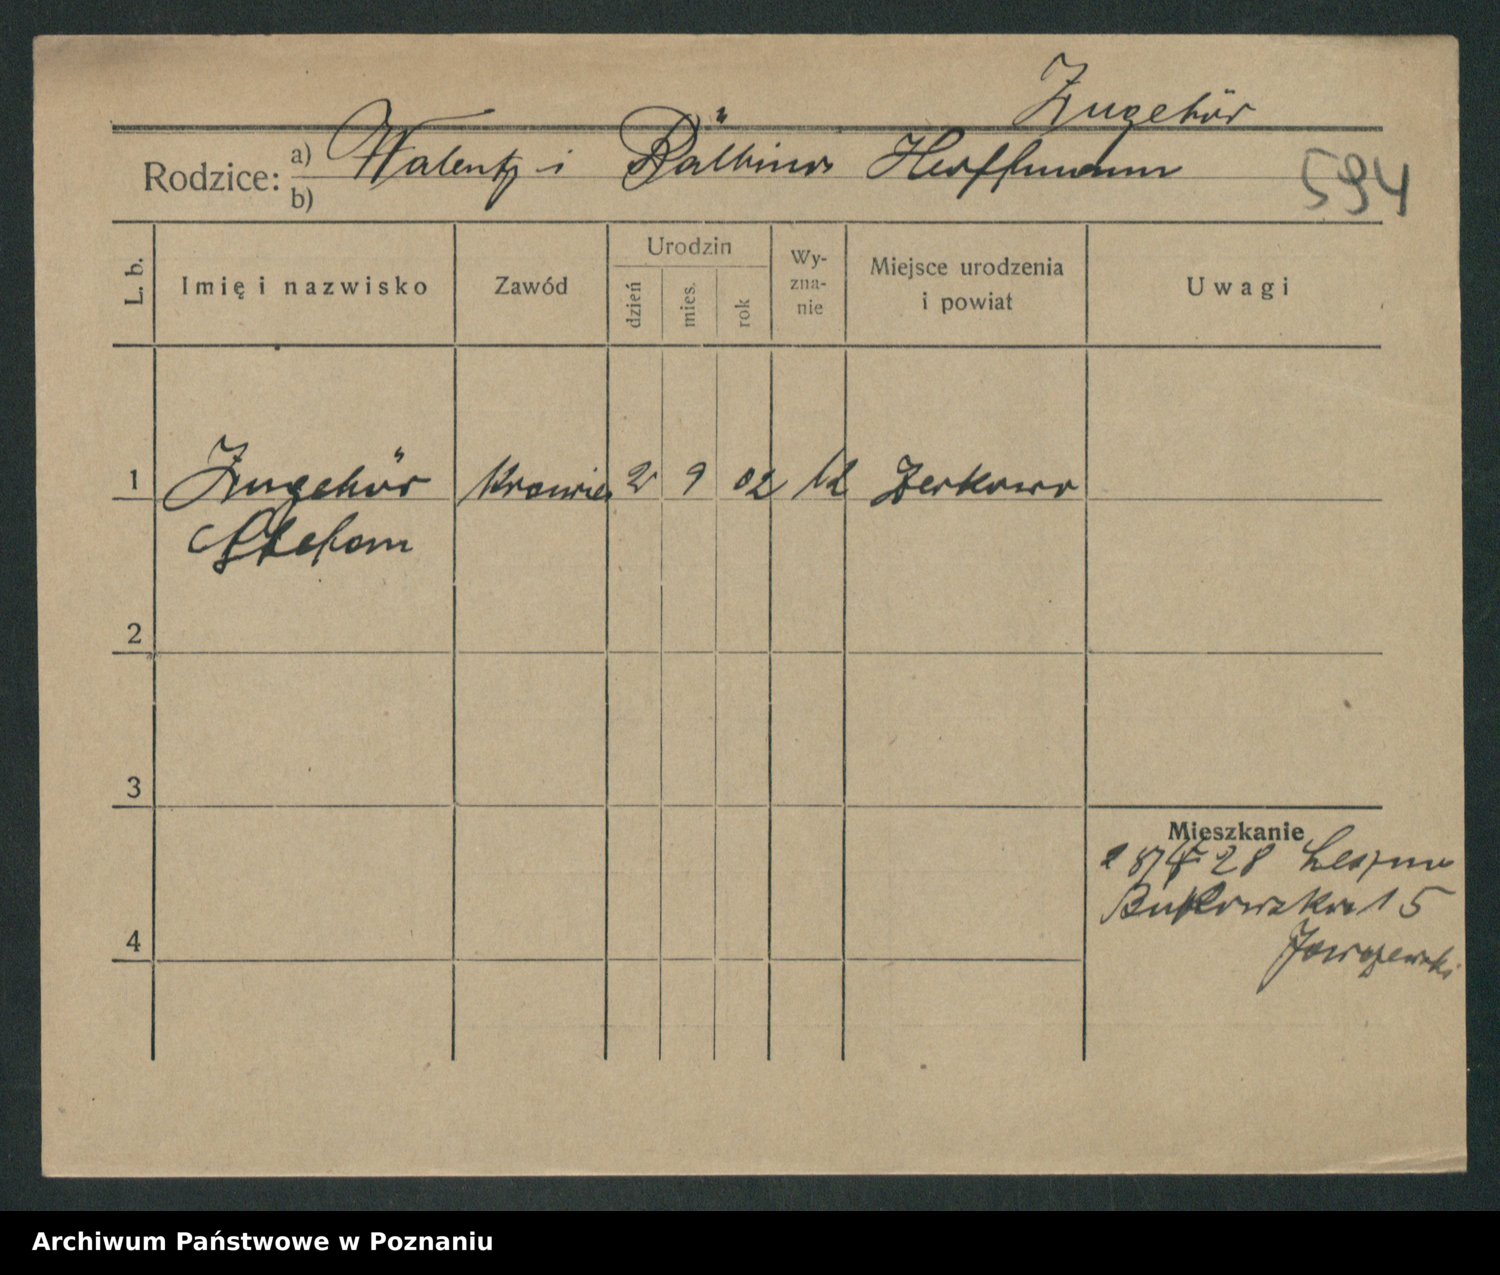 Zugehör
Rodzice: a) Walenty i Balbina Hoffmann
b)
594
L. b. Imię i nazwisko Zawód Urodzin dzień mies. rok Wy-zna-nie Miejsce urodzenia i powiat Uwagi
1 Zugehör Krawiec 2 9 02 Żerkowo
Stefan
2
3
Mieszkanie
28 Leszno
Bukowska 15
4
Archiwum Państwowe w Poznaniu